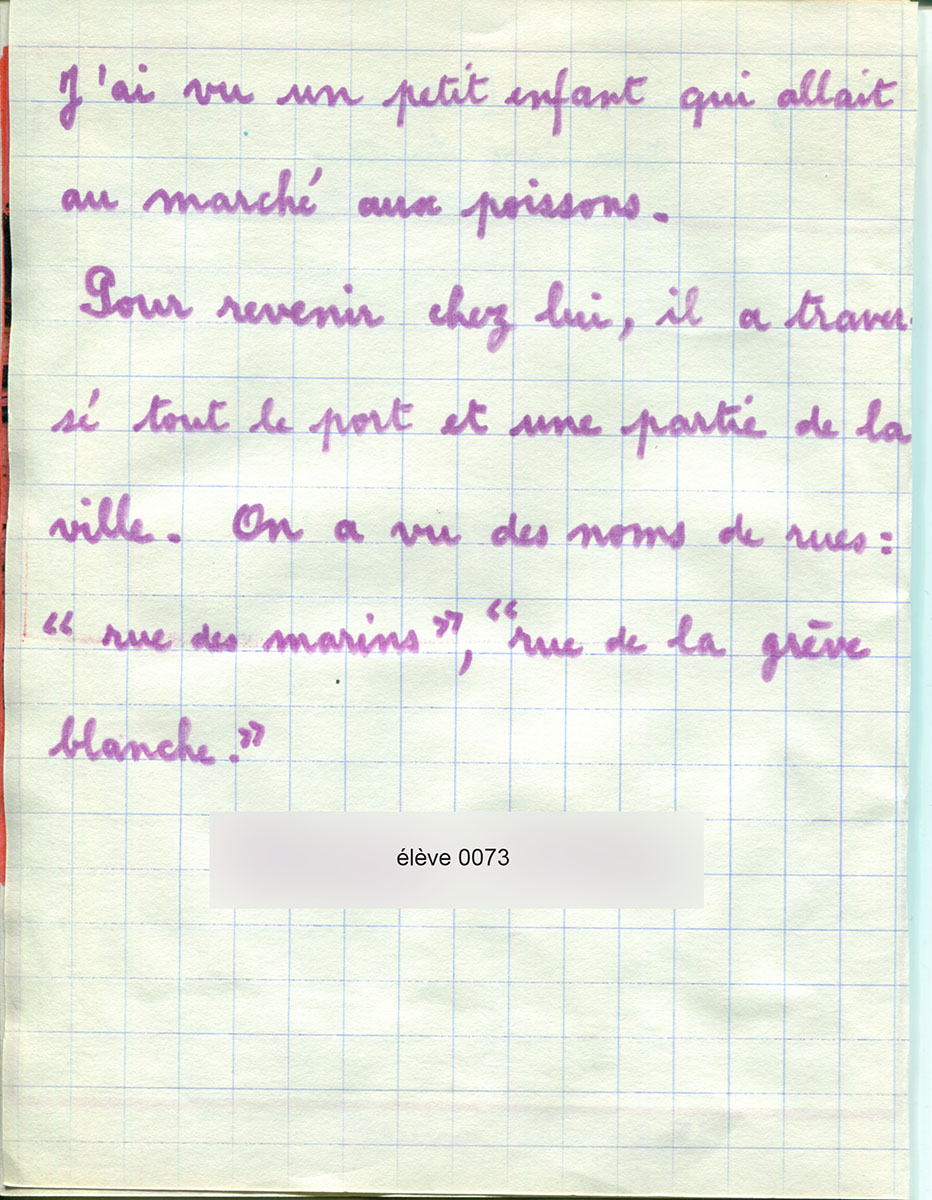 J'ai vu un petit enfant qui allait
au marché aux poissons.
Pour revenir chez lui, il a traver-
sé tout le port et une partie de la
ville. On a vu des noms de rues :
“ rue des marins ”, “ rue de la grève
blanche. ”
élève 0073